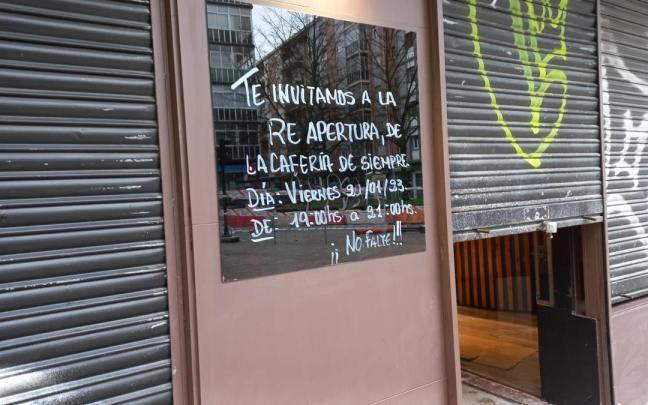 TE INVITAMOS A LA
RE APERTURA, DE
LA CAFERÍA DE SIEMPRE
DÍA: VIERNES 20/01/23.
DE: 19:00HS A 21:00HS.
¡¡ NO FALTE!!